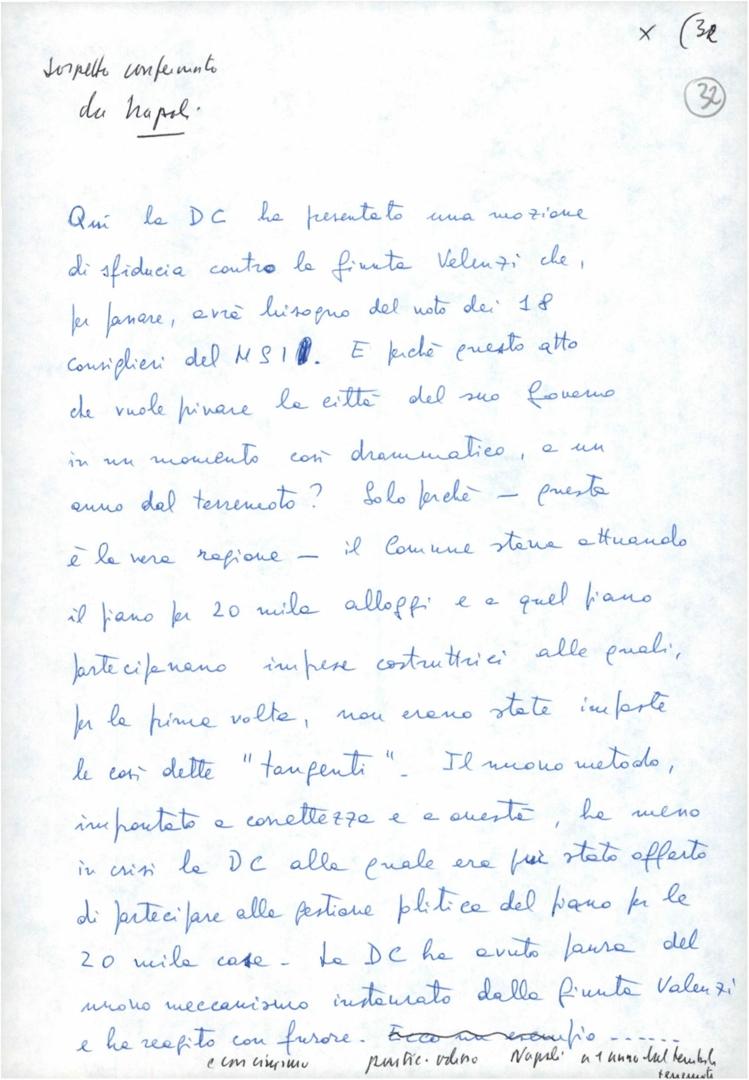 x (32
sospetto confermato
da Napoli.
32
Qui la DC ha presentato una mozione
di sfiducia contro la giunta Valenzi che,
per passare, avrà bisogno del voto dei 18
consiglieri del MSI. E perchè questo atto
che vuole privare la città del suo governo
in un momento così drammatico, a un
anno dal terremoto? Solo perchè — questa
è la vera ragione — il Comune stava attuando
il piano per 20 mila alloggi e a quel piano
partecipavano imprese costruttrici alle quali,
per la prima volta, non erano state imposte
le così dette "tangenti". Il nuovo metodo,
improntato a correttezza e a onestà, ha messo
in crisi la DC alla quale era pur stato offerto
di partecipare alla gestione politica del piano per le
20 mila case. La DC ha avuto paura del
nuovo meccanismo instaurato dalla giunta Valenzi
e ha reagito con furore. Ecco un esempio ......
e con cinismo Napoli a 1 anno dal
terremoto